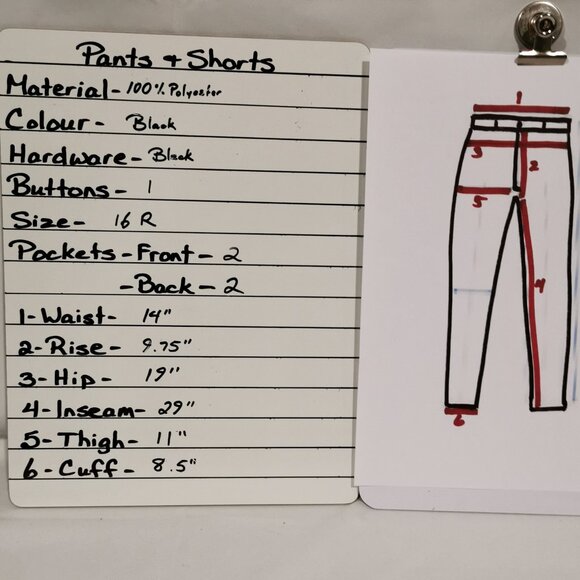 Pants & Shorts
Material - 100% Polyester
Colour - Black
Hardware - Black
Buttons - 1
Size - 16 R
Pockets - Front - 2
- Back - 2
1 - Waist - 14"
2 - Rise - 9.75"
3 - Hip - 19"
4 - Inseam - 29"
5 - Thigh - 11"
6 - Cuff - 8.5"
1
3
2
5
4
6